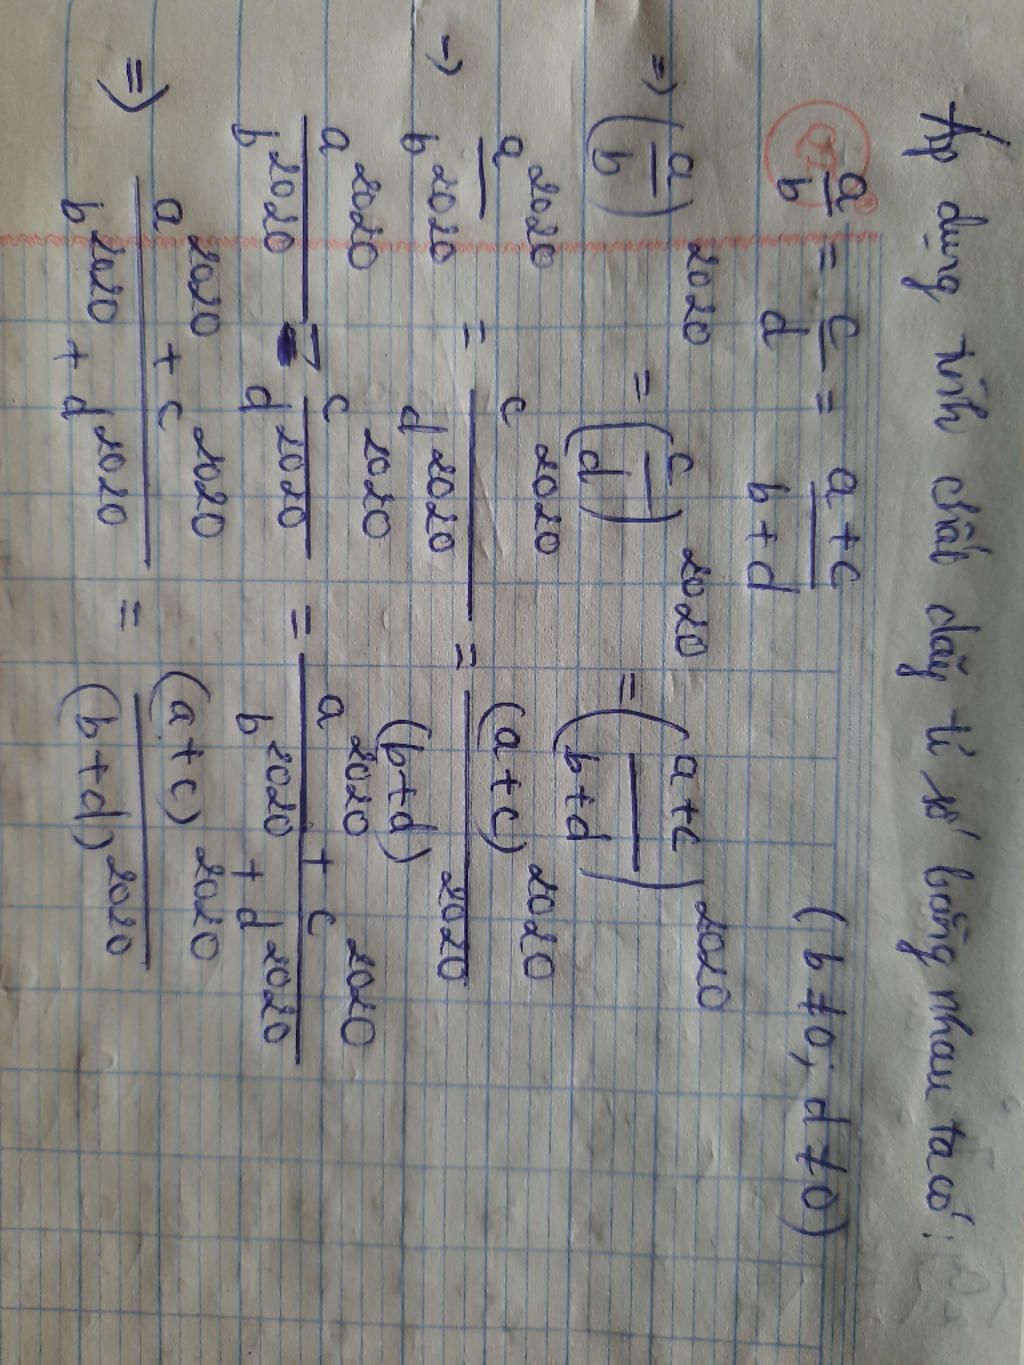 Áp dụng tính chất dãy tỉ số bằng nhau ta có:
a/b = c/d = a+c/b+d (b≠0; d≠0)
=> (a/b)^2020 = (c/d)^2020 = (a+c/b+d)^2020
=> a^2020/b^2020 = c^2020/d^2020 = (a+c)^2020/(b+d)^2020
a^2020/b^2020 = c^2020/d^2020 = a^2020 + c^2020/b^2020 + d^2020
=> a^2020 + c^2020/b^2020 + d^2020 = (a+c)^2020/(b+d)^2020